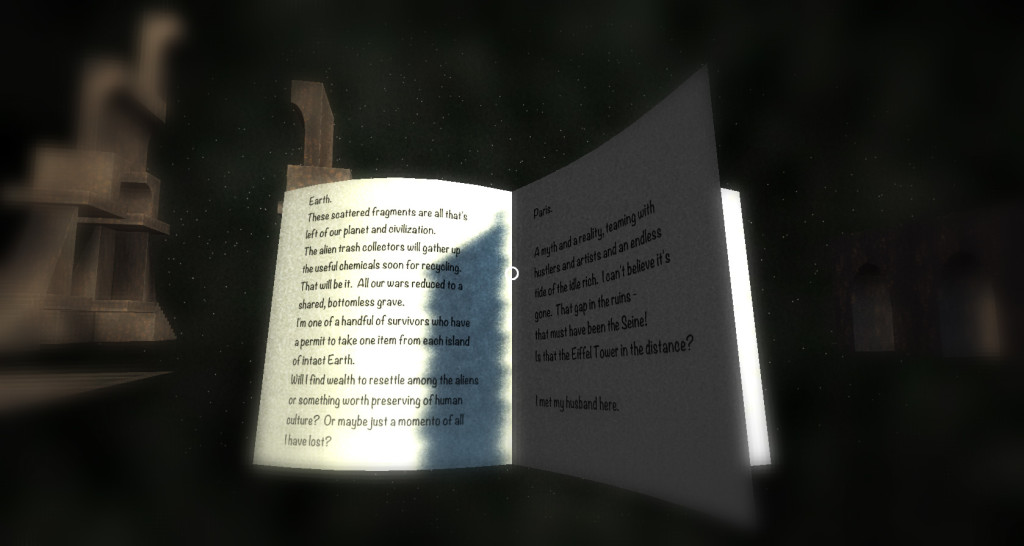 Earth.
These scattered fragments are all that's
left of our planet and civilization.
The alien trash collectors will gather up
the useful chemicals soon for recycling.
That will be it. All our wars reduced to a
shared, bottomless grave.
I'm one of a handful of survivors who have
a permit to take one item from each island
of intact Earth.
Will I find wealth to resettle among the aliens
or something worth preserving of human
culture? Or maybe just a momento of all
I have lost?
Paris.
A myth and a reality, teaming with
hustlers and artists and an endless
tide of the idle rich. I can't believe it's
gone. That gap in the ruins -
that must have been the Seine!
Is that the Eiffel Tower in the distance?
I met my husband here.